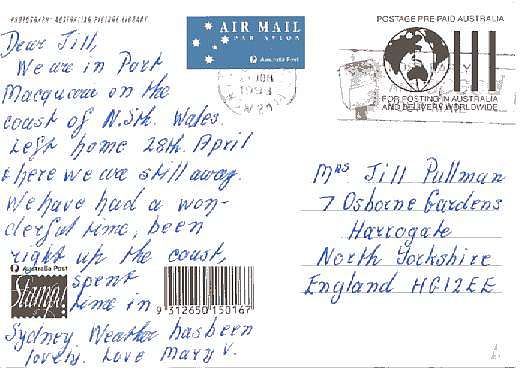 PHOTOGRAPH: AUSTRALIAN PICTURE LIBRARY
Dear Jill,
We are in Port
Macquarie on the
coast of N.Sth. Wales.
Left home 28th. April
& here we are still away.
We have had a won-
derful time, been
right up the coast,
spent
time in
Sydney. Weather has been
lovely. Love Mary V.
Australia Post
Stamps!
9 312650 150167
AIR MAIL
PAR AVION
Australia Post
POSTAGE PRE PAID AUSTRALIA
FOR POSTING IN AUSTRALIA
AND DELIVERY WORLDWIDE
Mrs Jill Pullman
7 Osborne Gardens
Harrogate
North Yorkshire
England HG12EE